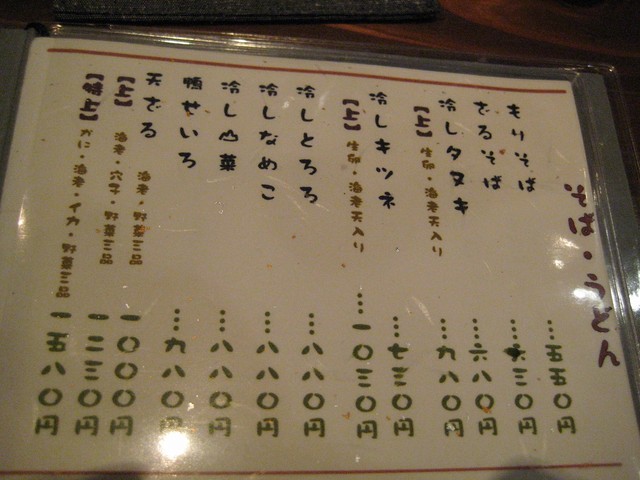 そば・うどん
もりそば …五五〇円
ざるそば …六三〇円
冷しタヌキ …六八〇円
【上】生卵・海老天入り …九八〇円
冷しキツネ …七三〇円
【上】生卵・海老天入り …一〇三〇円
冷しとろろ …八八〇円
冷しなめこ …八八〇円
冷し山菜 …八八〇円
鴨せいろ …九八〇円
天ざる 海老・野菜三品 一〇〇〇円
【上】海老・穴子・野菜三品 一二三〇円
【特上】かに・海老・イカ・野菜三品 一五八〇円